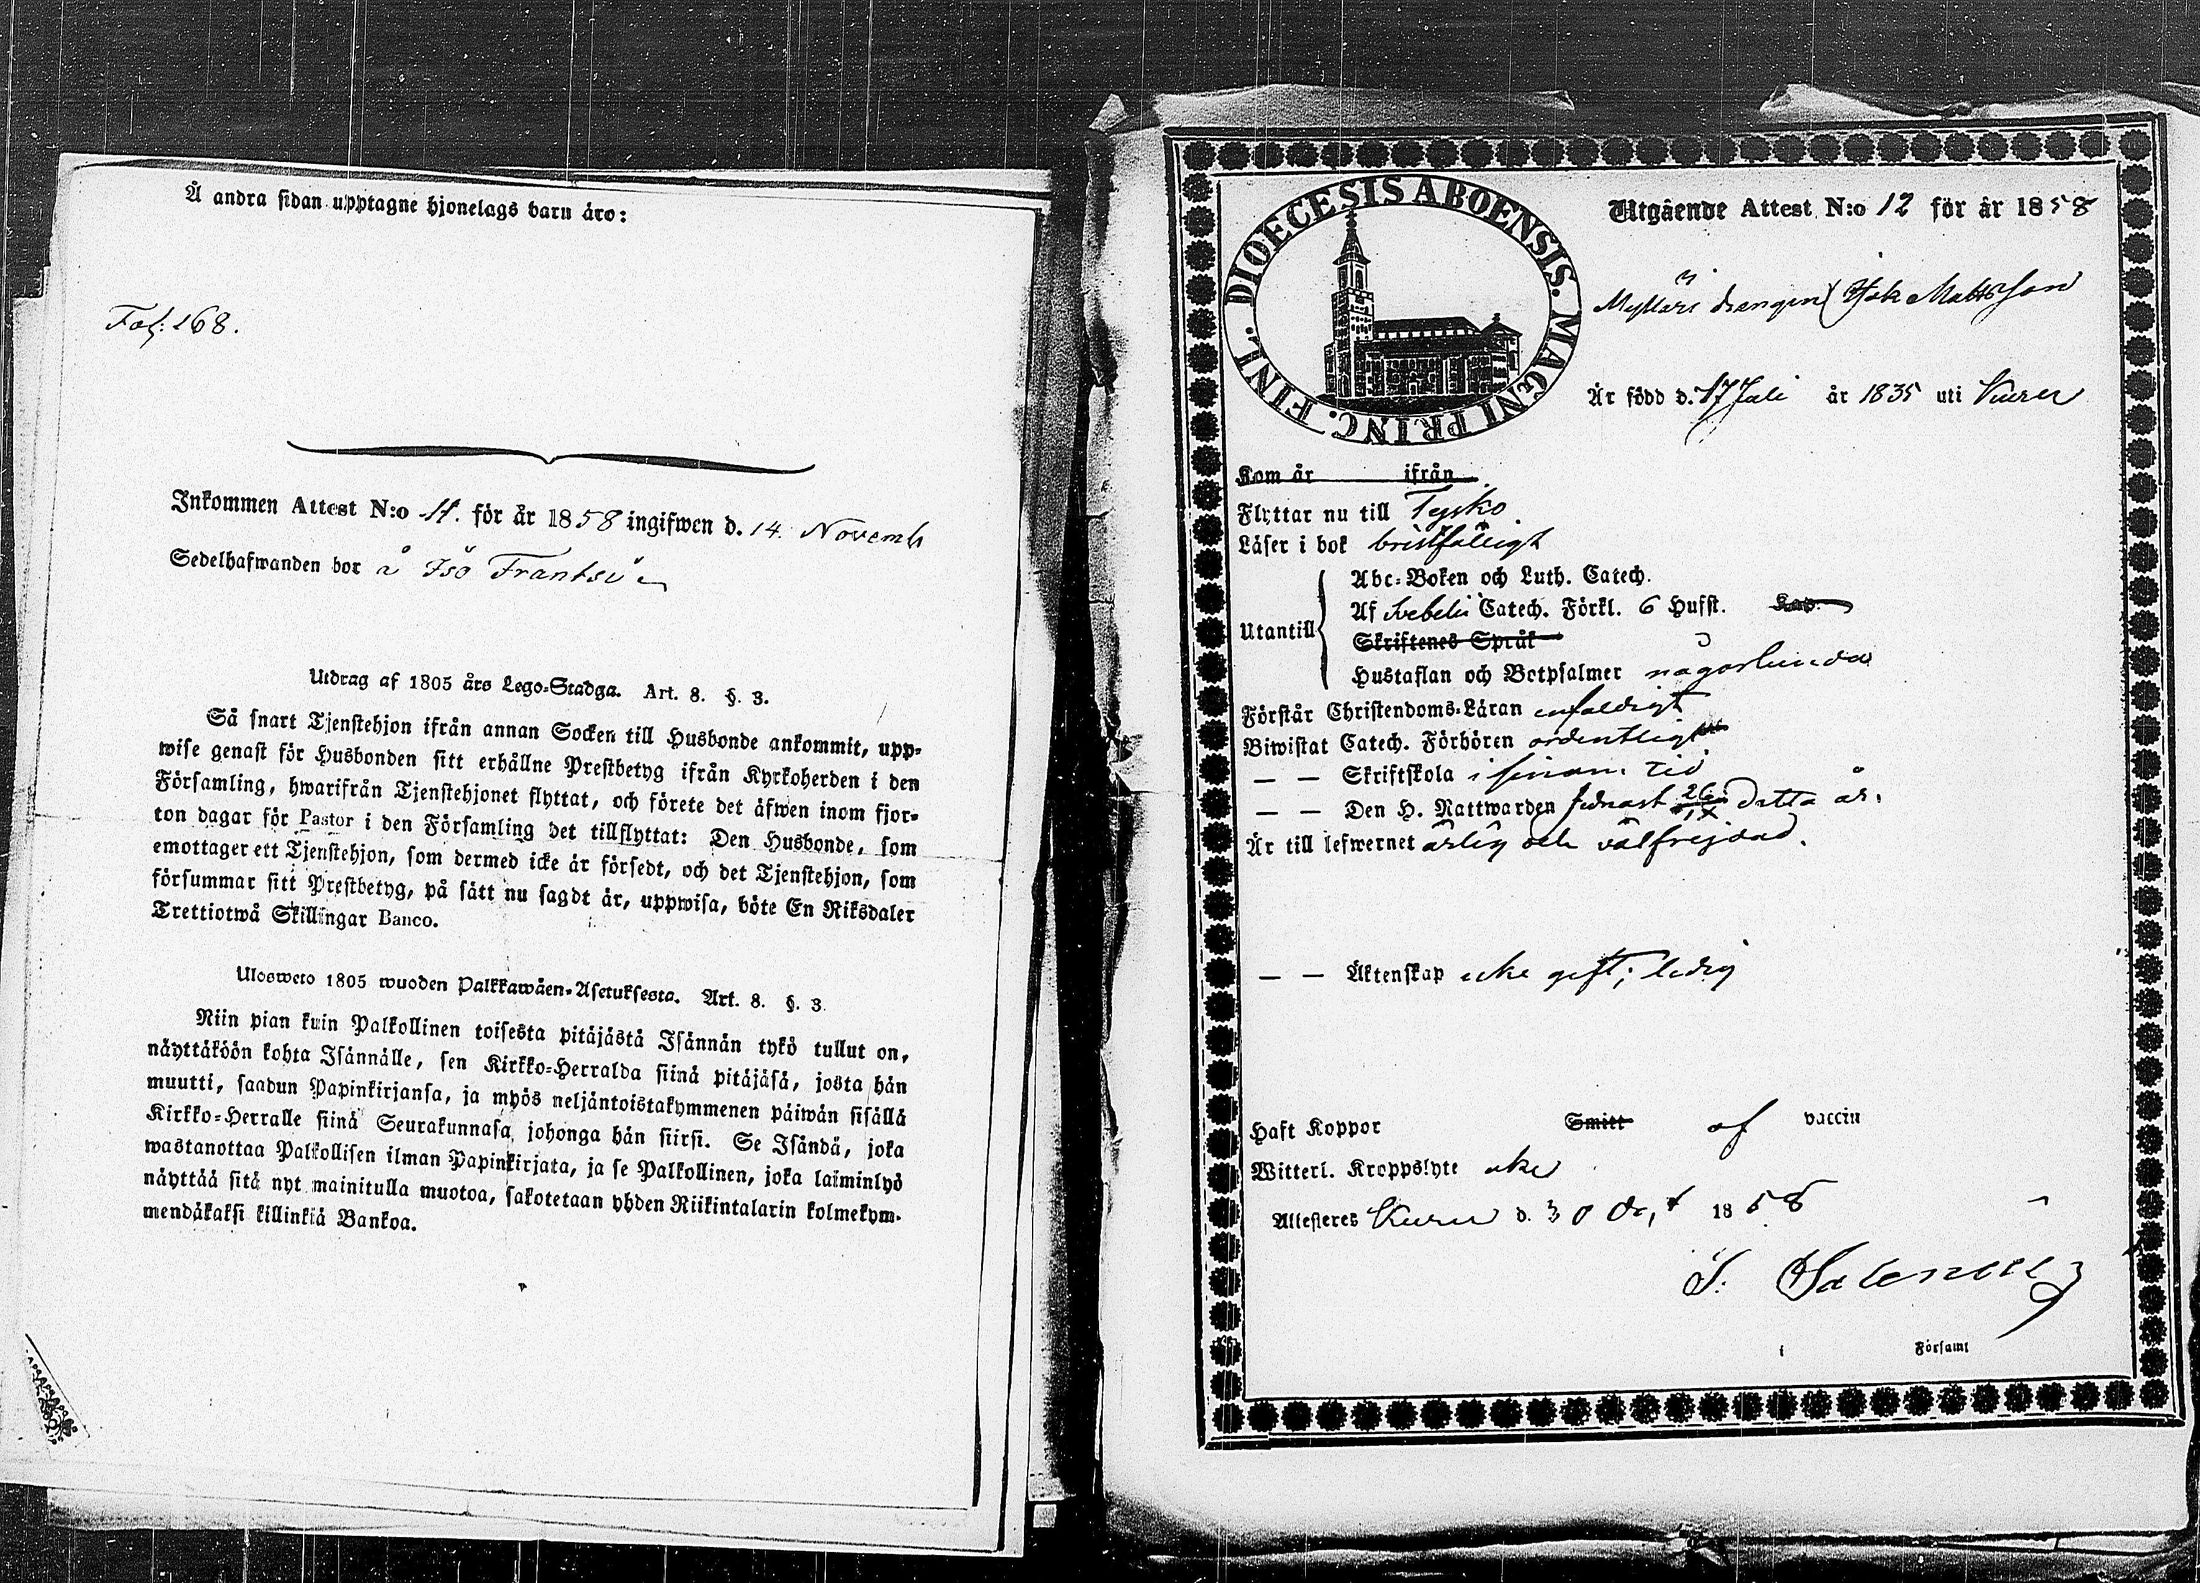 Å andra sidan upptagne hjonelags barn äro:
Fol: 168.
Inkommen Attest N:o 11. för år 1858 ingifwen d. 14 Novemb
Sedelhafwanden bor å Isö Frantsi
Utdrag af 1805 års Lego-Stadga. Art. 8. §. 3.
Så snart Tjenstehjon ifrån annan Socken till Husbonde ankommit, upp-
wise genast för Husbonden sitt erhållne Prestbetyg ifrån Kyrkoherden i den
Församling, hwarifrån Tjenstehjonet flyttat, och förete det äfwen inom fjor-
ton dagar för Pastor i den Församling det tillflyttat: Den Husbonde, som
emottager ett Tjenstehjon, som dermed icke är försedt, och det Tjenstehjon, som
försummar sitt Prestbetyg, på sätt nu sagdt är, uppwisa, böte En Riksdaler
Trettiotwå Skillingar Banco.
Ulosweto 1805 wuoden Palkkawäen-Asetuksesta. Art. 8. §. 3
Niin pian kuin Palkollinen toisesta pitäjästä Isännän tykö tullut on,
näyttäköön kohta Isännälle, sen Kirkko-Herralda siinä pitäjäsä, josta hän
muutti, saadun Papinkirjansa, ja myös neljäntoistakymmenen päiwän sisällä
Kirkko-Herralle siinä Seurakunnasa johonga hän siirsi. Se Isändä, joka
wastanottaa Palkollisen ilman Papinkirjata, ja se Palkollinen, joka laiminlyö
näyttää sitä nyt mainitulla muotoa, sakotetaan yhden Riikintalarin kolmekym-
mendäkaksi killinkiä Bankoa.
DIOECESIS ABOENSIS. MAGNI PRINC. FINL.
Utgående Attest N:o 12 för år 1858
drängen Isak Mattsson
Är född d. 17 Juli år 1835 uti Kuru
Kom år ifrån
Flyttar nu till Teisko
Läser i bok bristfälligt
Utantill
Abc-Boken och Luth. Catech.
Af Svebelii Catech. Förkl. 6 Hufst. Kap.
Skriftenes Språk
Hustaflan och Botpsalmer någorlunda
Förstår Christendoms-Läran enfaldigt
Biwistat Catech. Förhören ordentligt
— — Skriftskola i sinom tid
— — Den H. Nattwarden sednast 26/IX detta år.
Är till lefwernet ärlig och välfrejdad.
— — Äktenskap icke gift; ledig
Haft Koppor Smitt af vaccin
Witterl. Kroppslyte icke
Attesteres Kuru d. 30 Oct 1858
i Församl